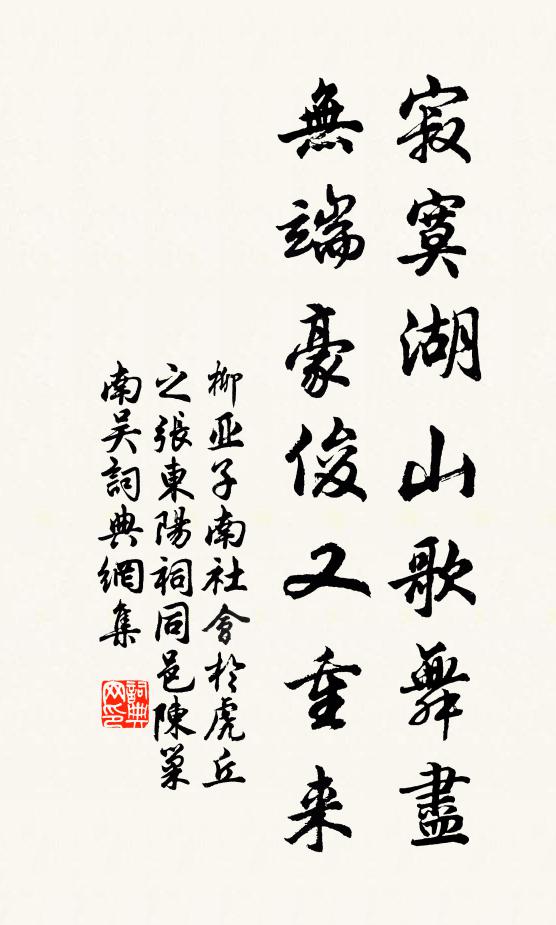 寂寞湖山歌舞盡
無端豪俊又重来
柳亚子南社會於虎丘
之張東陽祠同邑陳巢
南吴詞典網集
詞典
网印